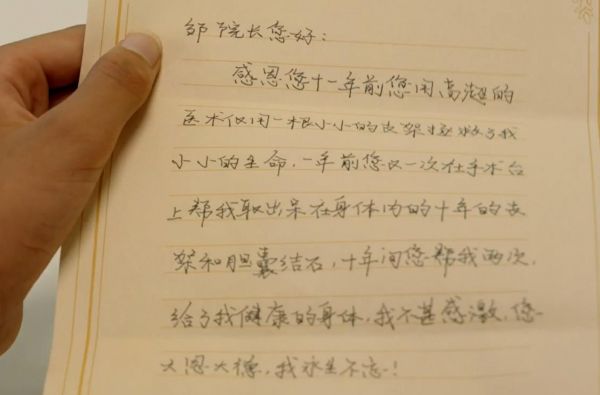 邹院长您好:
感恩您十一年前您用高超的
医术仅用一根小小的支架拯救了我
小小的生命,一年前您又一次在手术台
上帮我取出呆在身体内的十年的支
架和胆囊结石,十年间您帮我两次,
给了我健康的身体,我不甚感激,您
大恩大德,我永生不忘!